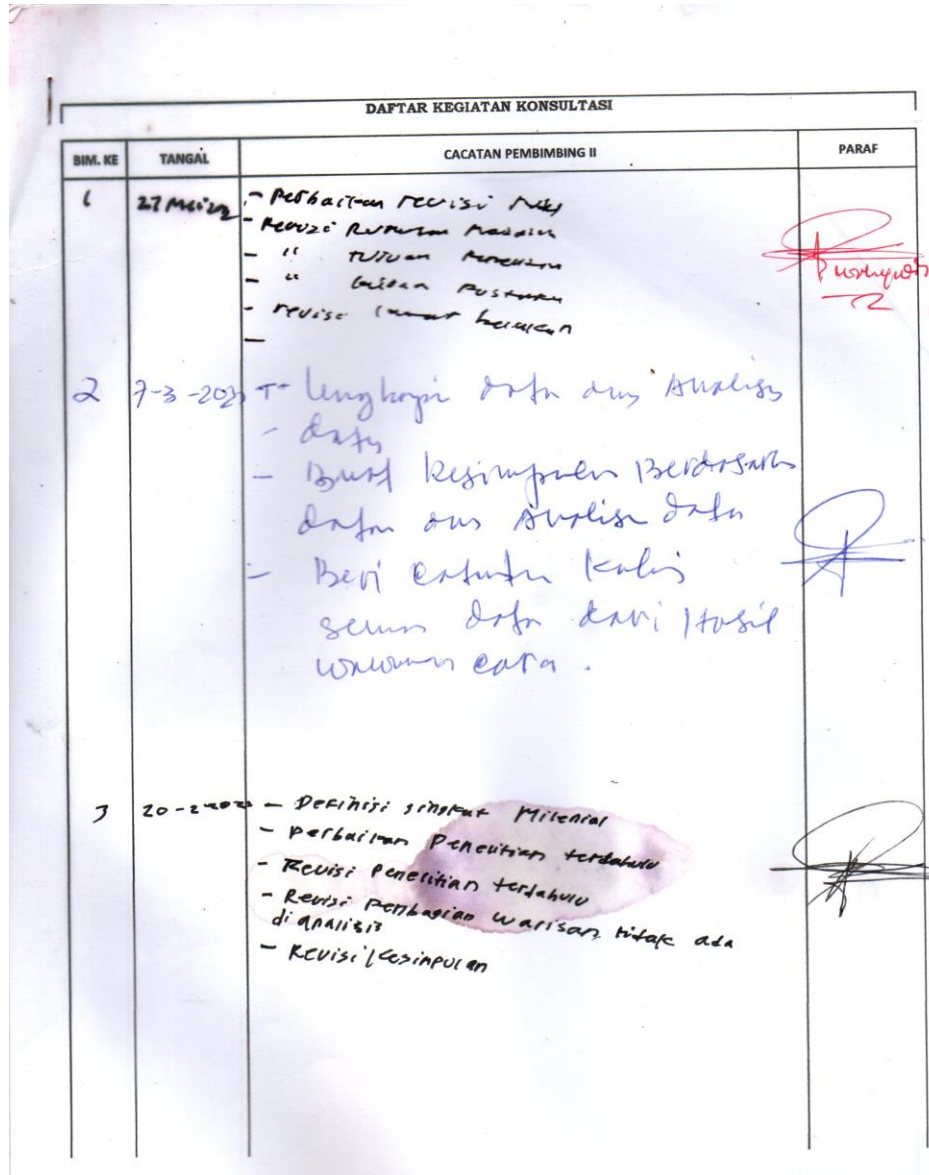 DAFTAR KEGIATAN KONSULTASI
BIM. KE TANGAL CACATAN PEMBIMBING II PARAF
1 27 - Perbaikan revisi
- Revizi Rumusan Masalah
- " Tujuan
- " Pustaka
- revisi
-
2 7-3- - lengkapi data dan Analisis
- data
- Buat Kesimpulan Berdasarkan
data dan Analisa data
- Beri catatan Kaki
semua data dari Hasil
wawancara.
3 20-2- - Definisi singkat Milenial
- Perbaikan Penelitian terdahulu
- Revisi Penelitian terdahulu
- Revisi Pembagian Warisan, tidak ada
di analisis
- Revisi Kesimpulan